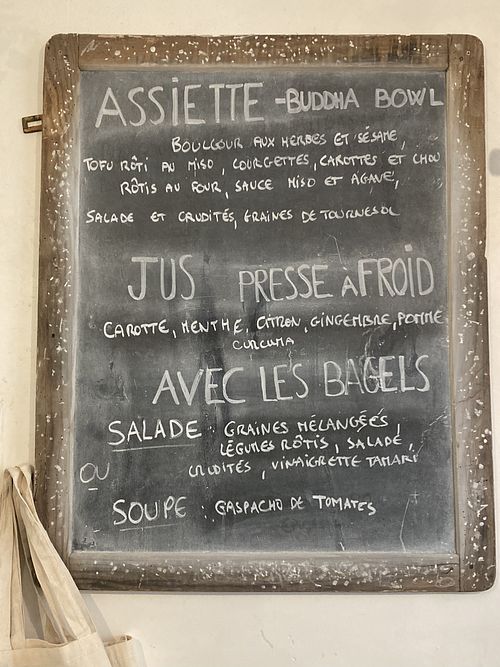 ASSIETTE - BUDDHA BOWL
BOULGOUR AUX HERBES ET SÉSAME,
TOFU RÔTI AU MISO, COURGETTES, CAROTTES ET CHOU
RÔTIS AU FOUR, SAUCE MISO ET AGAVE,
SALADE ET CRUDITÉS, GRAINES DE TOURNESOL
JUS PRESSE À FROID
CAROTTE, MENTHE, CITRON, GINGEMBRE, POMME
CURCUMA
AVEC LES BAGELS
SALADE : GRAINES MÉLANGÉES,
LÉGUMES RÔTIS, SALADE,
CRUDITÉS, VINAIGRETTE TAMARI
OU
SOUPE : GASPACHO DE TOMATES